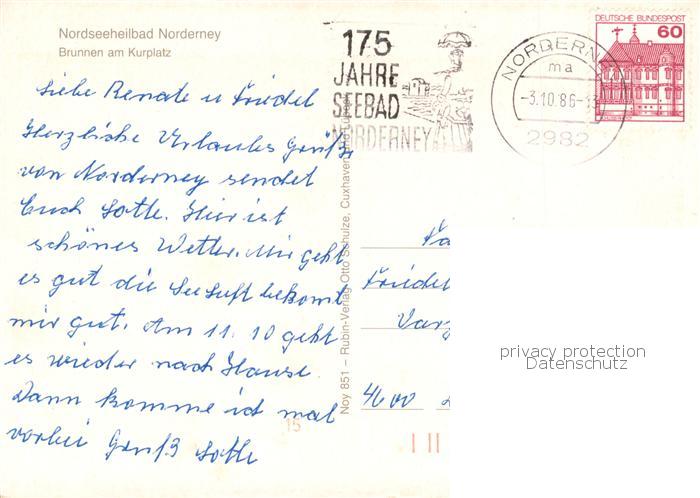 Nordseeheilbad Norderney
Brunnen am Kurplatz
Liebe Renate u Friedel
Herzliche Urlaubs Grüße
von Norderney sendet
Euch Lotte. Hier ist
schönes Wetter. Mir geht
es gut die Seeluft bekomt
mir gut. Am 11. 10 geht
es wieder nach Hause.
Dann komme ich mal
vorbei Gruß Lotte
15
Noy 851 – Rubin-Verlag Otto Schulze, Cuxhaven
175
JAHRE
SEEBAD
NORDERNEY
NORDERNEY
ma
-3.10.86-
2982
DEUTSCHE BUNDESPOST
60
Fa
Friedel
Varz
4600
privacy protection
Datenschutz